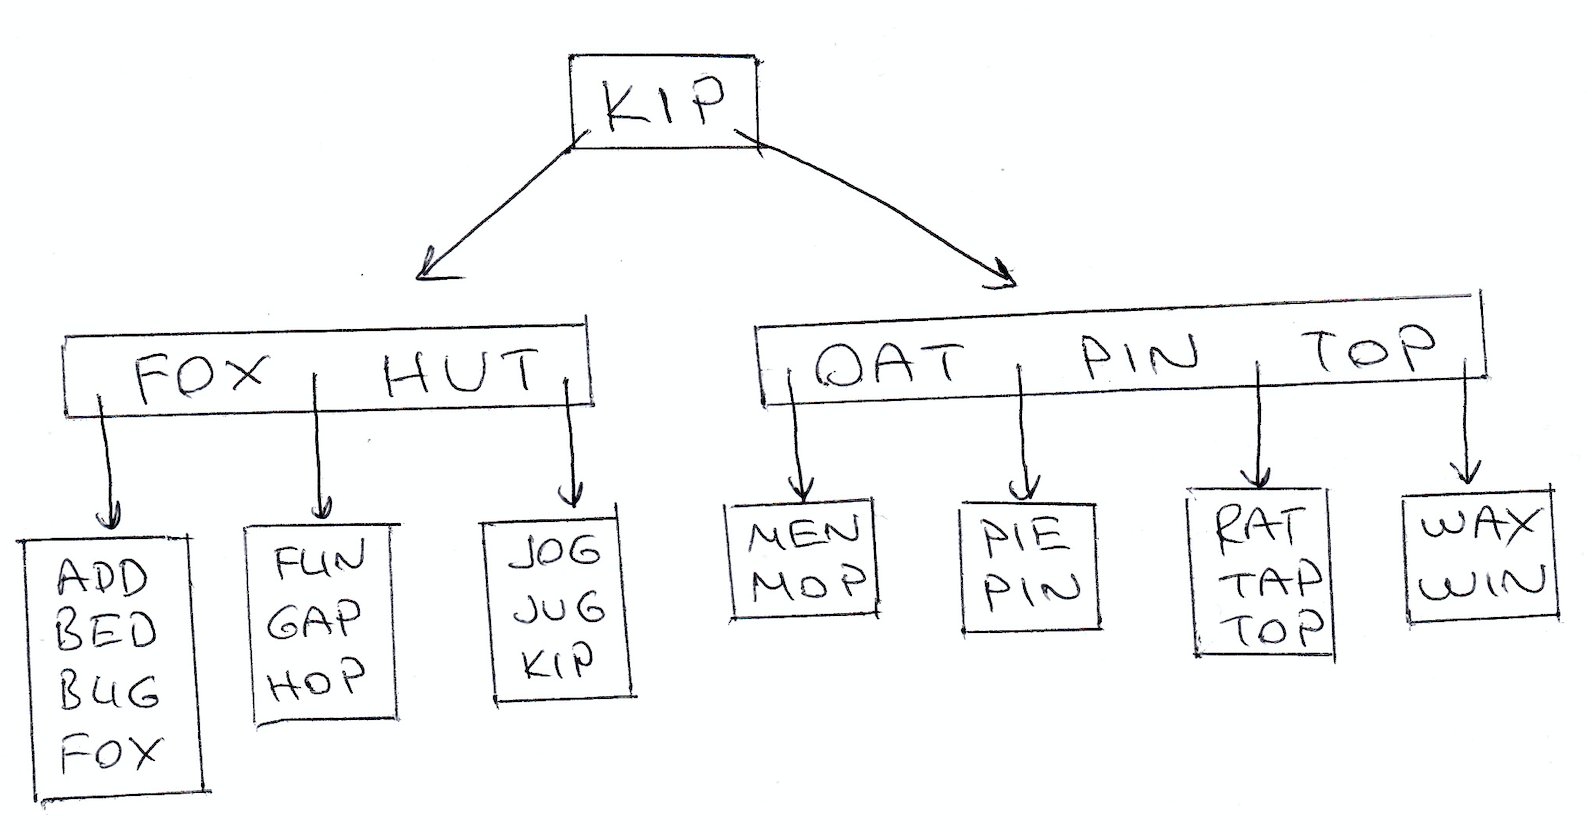 KIP
FOX HUT
OAT PIN TOP
ADD
BED
BUG
FOX
FUN
GAP
HOP
JOG
JUG
KIP
MEN
MOP
PIE
PIN
RAT
TAP
TOP
WAX
WIN